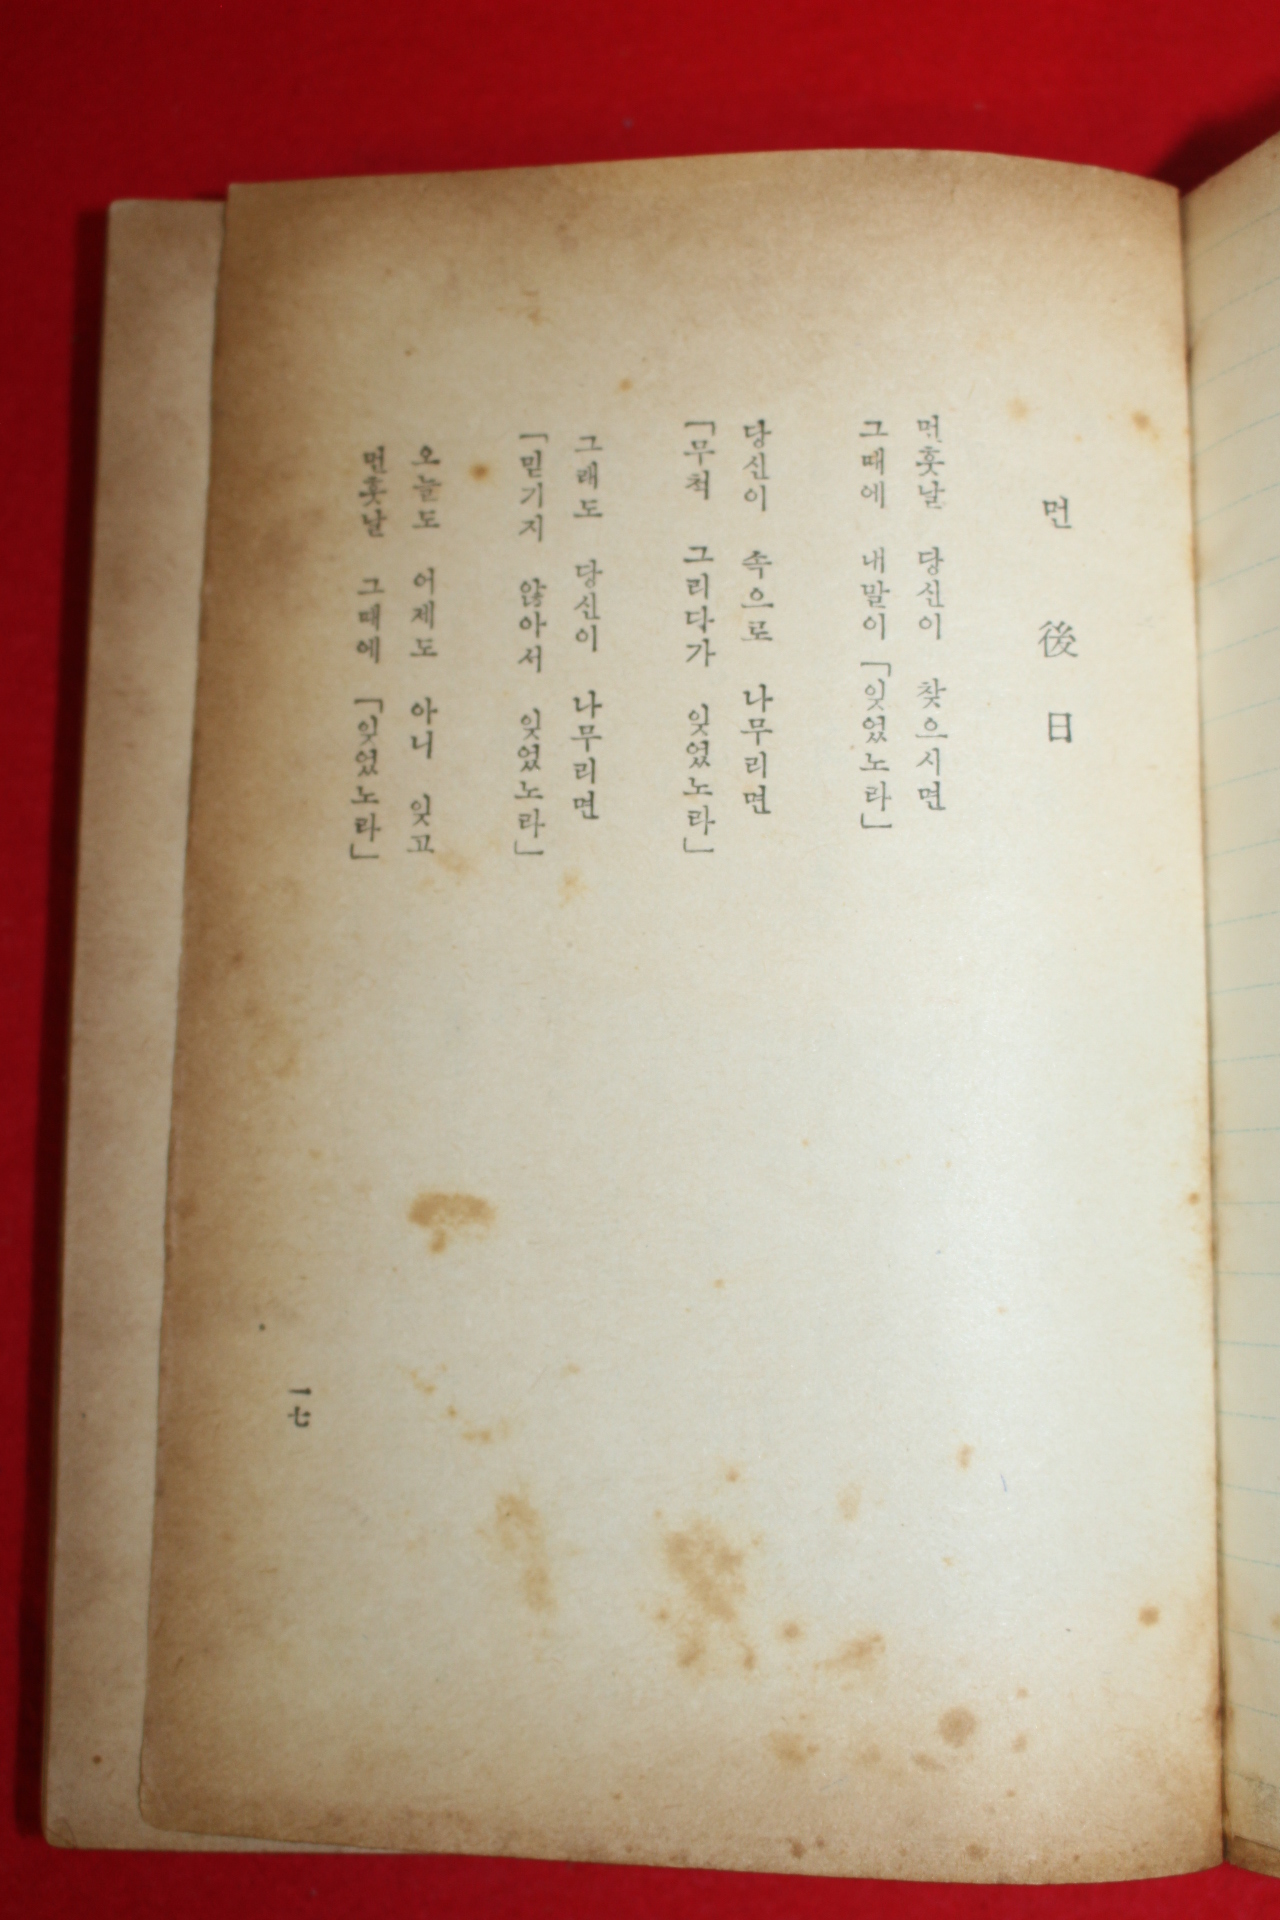 먼 後日
먼훗날 당신이 찾으시면
그때에 내말이 「잊었노라」
당신이 속으로 나무리면
「무척 그리다가 잊었노라」
그래도 당신이 나무리면
「믿기지 않아서 잊었노라」
오늘도 어제도 아니 잊고
먼훗날 그때에 「잊었노라」
一七